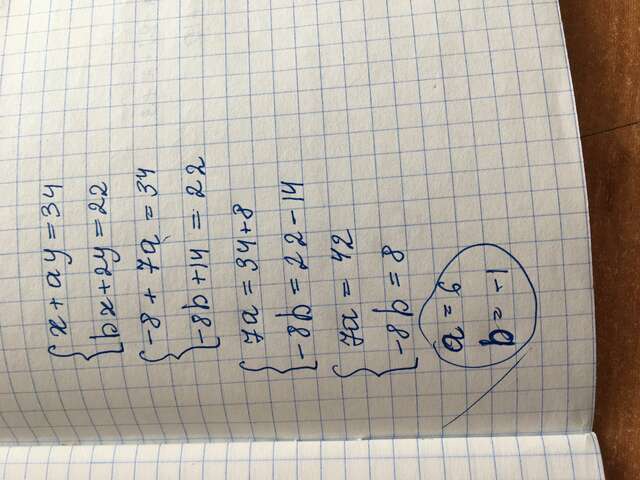 x + ay = 34
bx + 2y = 22
-8 + 7a = 34
-8b + 14 = 22
7a = 34 + 8
-8b = 22 - 14
7a = 42
-8b = 8
a = 6
b = -1